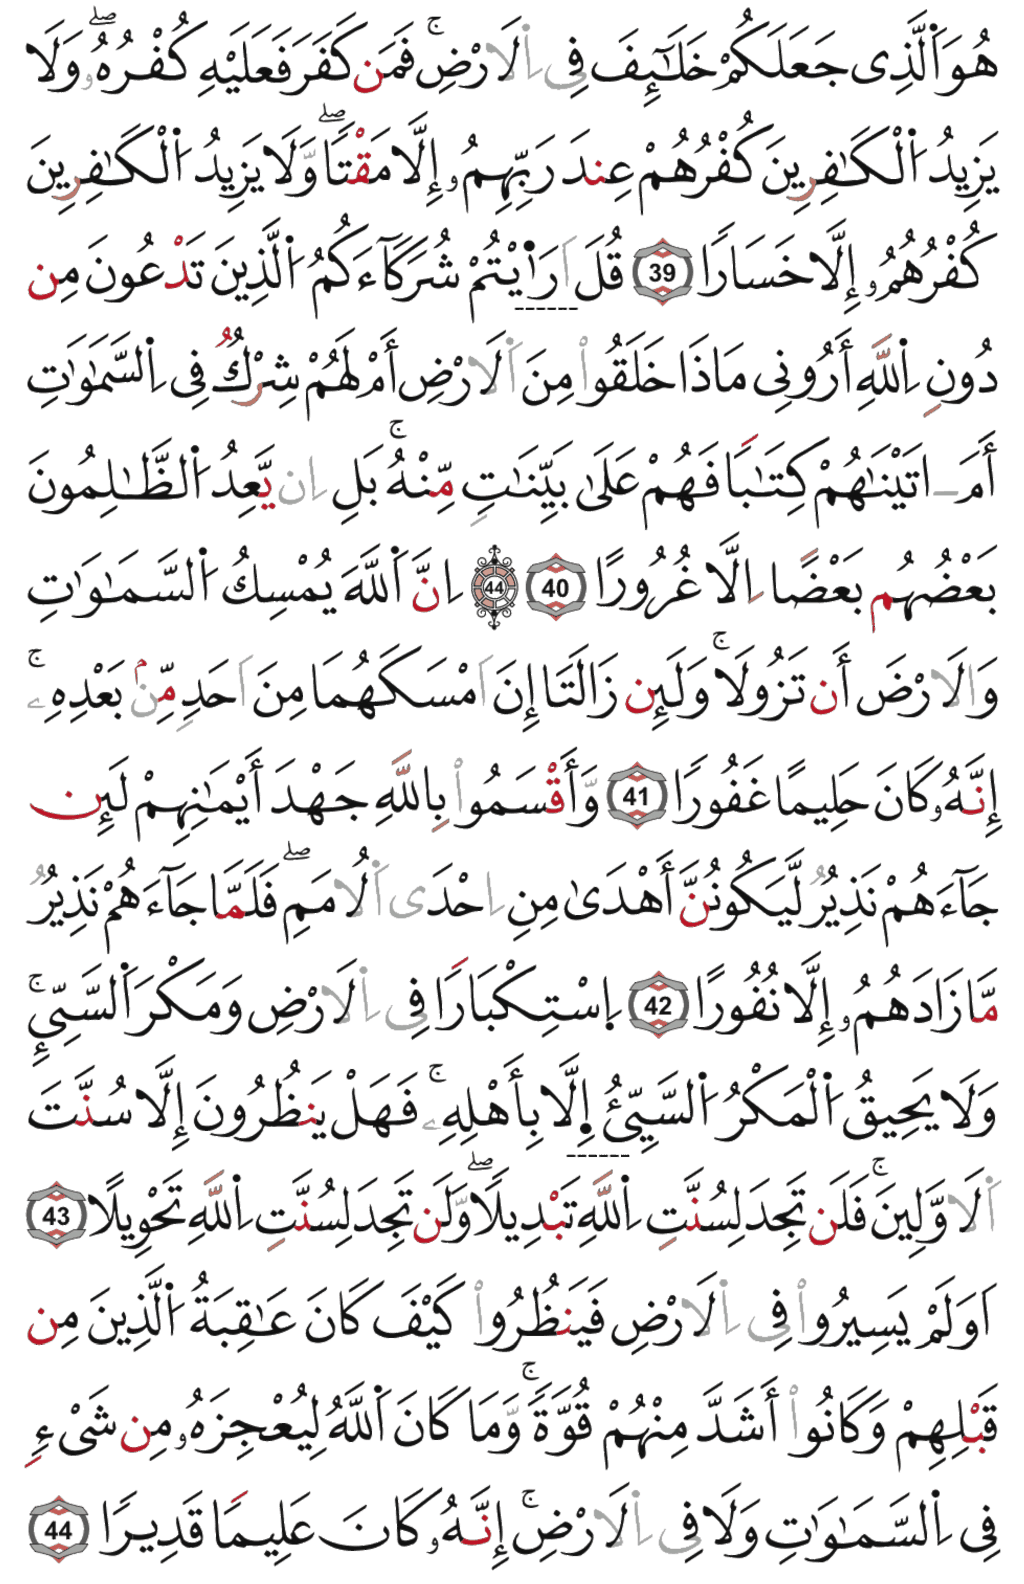 هُوَ اَ۬لَّذِى جَعَلَكُمْ خَلَٰٓئِفَ فِى اِ۬لَارْضِۚ فَمَن كَفَرَ فَعَلَيْهِ كُفْرُهُۥۖ وَلَا
يَزِيدُ اُ۬لْكَٰفِرِينَ كُفْرُهُمْ عِندَ رَبِّهِمُۥ إِلَّا مَقْتاٗۖ وَلَا يَزِيدُ اُ۬لْكَٰفِرِينَ
كُفْرُهُمُۥ إِلَّا خَسَارًا 39 قُلَ اَرَٰ۬يْتُمْ شُرَكَآءَكُمُ اُ۬لَّذِينَ تَدْعُونَ مِن
دُونِ اِ۬للَّهِ أَرُونِى مَاذَا خَلَقُوا۟ مِنَ اَ۬لَارْضِ أَمْ لَهُمْ شِرْكٌ فِى اِ۬لسَّمَٰوَٰتِ
أَمَ اتَيْنَٰهُمْ كِتَٰبًا فَهُمْ عَلَىٰ بَيِّنَٰتٍ مِّنْهُۚ بَلِ اِن يَّعِدُ اُ۬لظَّٰلِمُونَ
بَعْضُهُم بَعْضًا اِلَّا غُرُورًا 40 44 اِنَّ اَ۬للَّهَ يُمْسِكُ اُ۬لسَّمَٰوَٰتِ
وَالَارْضَ أَن تَزُولَاۚ وَلَئِن زَالَتَا إِنَ اَمْسَكَهُمَا مِنَ اَحَدٍ مِّنۢ بَعْدِهِۦۚ
إِنَّهُۥ كَانَ حَلِيمًا غَفُورًا 41 وَّأَقْسَمُوا۟ بِاللَّهِ جَهْدَ أَيْمَٰنِهِمْ لَئِن
جَآءَهُمْ نَذِيرٌ لَّيَكُونُنَّ أَهْدَىٰ مِنِ اِحْدَى اَ۬لُامَمِۖ فَلَمَّا جَآءَهُمْ نَذِيرٌ
مَّا زَادَهُمُۥ إِلَّا نُفُورًا 42 اِ۪سْتِكْبَارًا فِى اِ۬لَارْضِ وَمَكْرَ اَ۬لسَّيِّئِۚ
وَلَا يَحِيقُ اُ۬لْمَكْرُ اُ۬لسَّيِّئُ إِلَّا بِأَهْلِهِۦۚ فَهَلْ يَنظُرُونَ إِلَّا سُنَّتَ
اَ۬لَاوَّلِينَۚ فَلَن تَجِدَ لِسُنَّتِ اِ۬للَّهِ تَبْدِيلًاۖ وَّلَن تَجِدَ لِسُنَّتِ اِ۬للَّهِ تَحْوِيلًا 43
اَوَلَمْ يَسِيرُوا۟ فِى اِ۬لَارْضِ فَيَنظُرُوا۟ كَيْفَ كَانَ عَٰقِبَةُ اُ۬لَّذِينَ مِن
قَبْلِهِمْ وَكَانُوا۟ أَشَدَّ مِنْهُمْ قُوَّةًۚ وَّمَا كَانَ اَ۬للَّهُ لِيُعْجِزَهُۥ مِن شَىْءٍ
فِى اِ۬لسَّمَٰوَٰتِ وَلَا فِى اِ۬لَارْضِۚ إِنَّهُۥ كَانَ عَلِيمًا قَدِيرًا 44